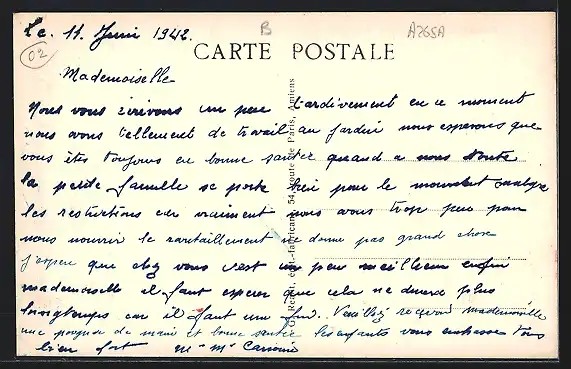 Le. 11. Juin 1942.
B
A765A
02
CARTE POSTALE
Mademoiselle
Nous vous écrivons un peu tardivement en ce moment
nous avons tellement de travail au jardin nous esperons que
vous êtes toujours en bonne santée quand a nous toute
la petite famille se porte bien pour le moment malgre
les restrictions car vraiment nous avons trop peu pour
nous nourrir le ravitaillement ne donne pas grand chose
j'espere que chez vous c'est un peu meilleur enfin
mademoiselle il faut esperer que cela ne durera plus
longtemps car il faut une fin. Veuillez recevoir mademoiselle
une poignée de main et bonne santée les enfants vous embrasse tous
bien fort Mr Me
G. Réant, édit.-fabricant, 54, route de Paris, Amiens